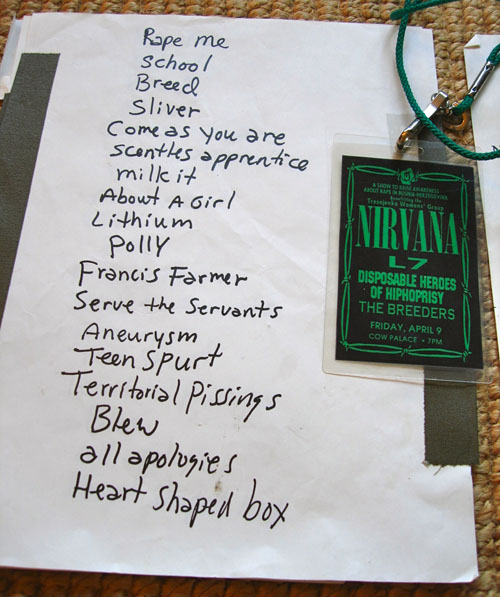 Rape me
School
Breed
Sliver
Come as you are
scentles apprentice
milk it
About A Girl
Lithium
Polly
Francis Farmer
Serve the Servants
Aneurysm
Teen Spurt
Territorial Pissings
Blew
all apologies
Heart Shaped box
A SHOW TO RAISE AWARENESS
ABOUT RAPE IN BOSNIA-HERZEGOVINA
Benefitting the
Tresnjevka Womens' Group
NIRVANA
L7
DISPOSABLE HEROES
OF HIPHOPRISY
THE BREEDERS
FRIDAY, APRIL 9
COW PALACE • 7PM